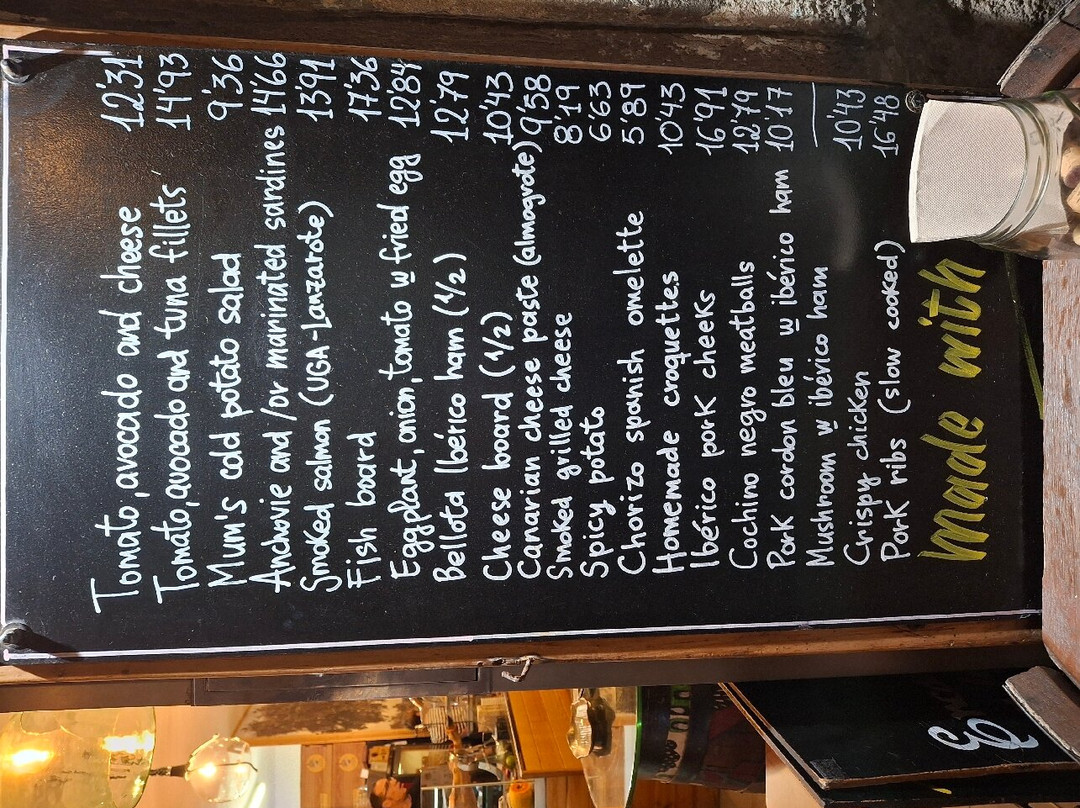 Tomato, avocado and cheese 12'31
Tomato, avocado and tuna fillets 14'93
Mum's cold potato salad 9'36
Anchovie and/or marinated sardines 14'66
Smoked salmon (UGA-Lanzarote) 13'91
Fish board 17'36
Eggplant, onion, tomato w fried egg 12'84
Bellota Ibérico ham (1/2) 12'79
Cheese board (1/2) 10'43
Canarian cheese paste (almogrote) 9'58
Smoked grilled cheese 8'19
Spicy potato 6'63
Chorizo spanish omelette 5'89
Homemade croquettes 10'43
Ibérico pork cheeks 16'91
Cochino negro meatballs 12'79
Pork cordon bleu w ibérico ham 10'17
Mushroom w ibérico ham —
Crispy chicken 10'43
Pork ribs (slow cooked) 16'48
made with